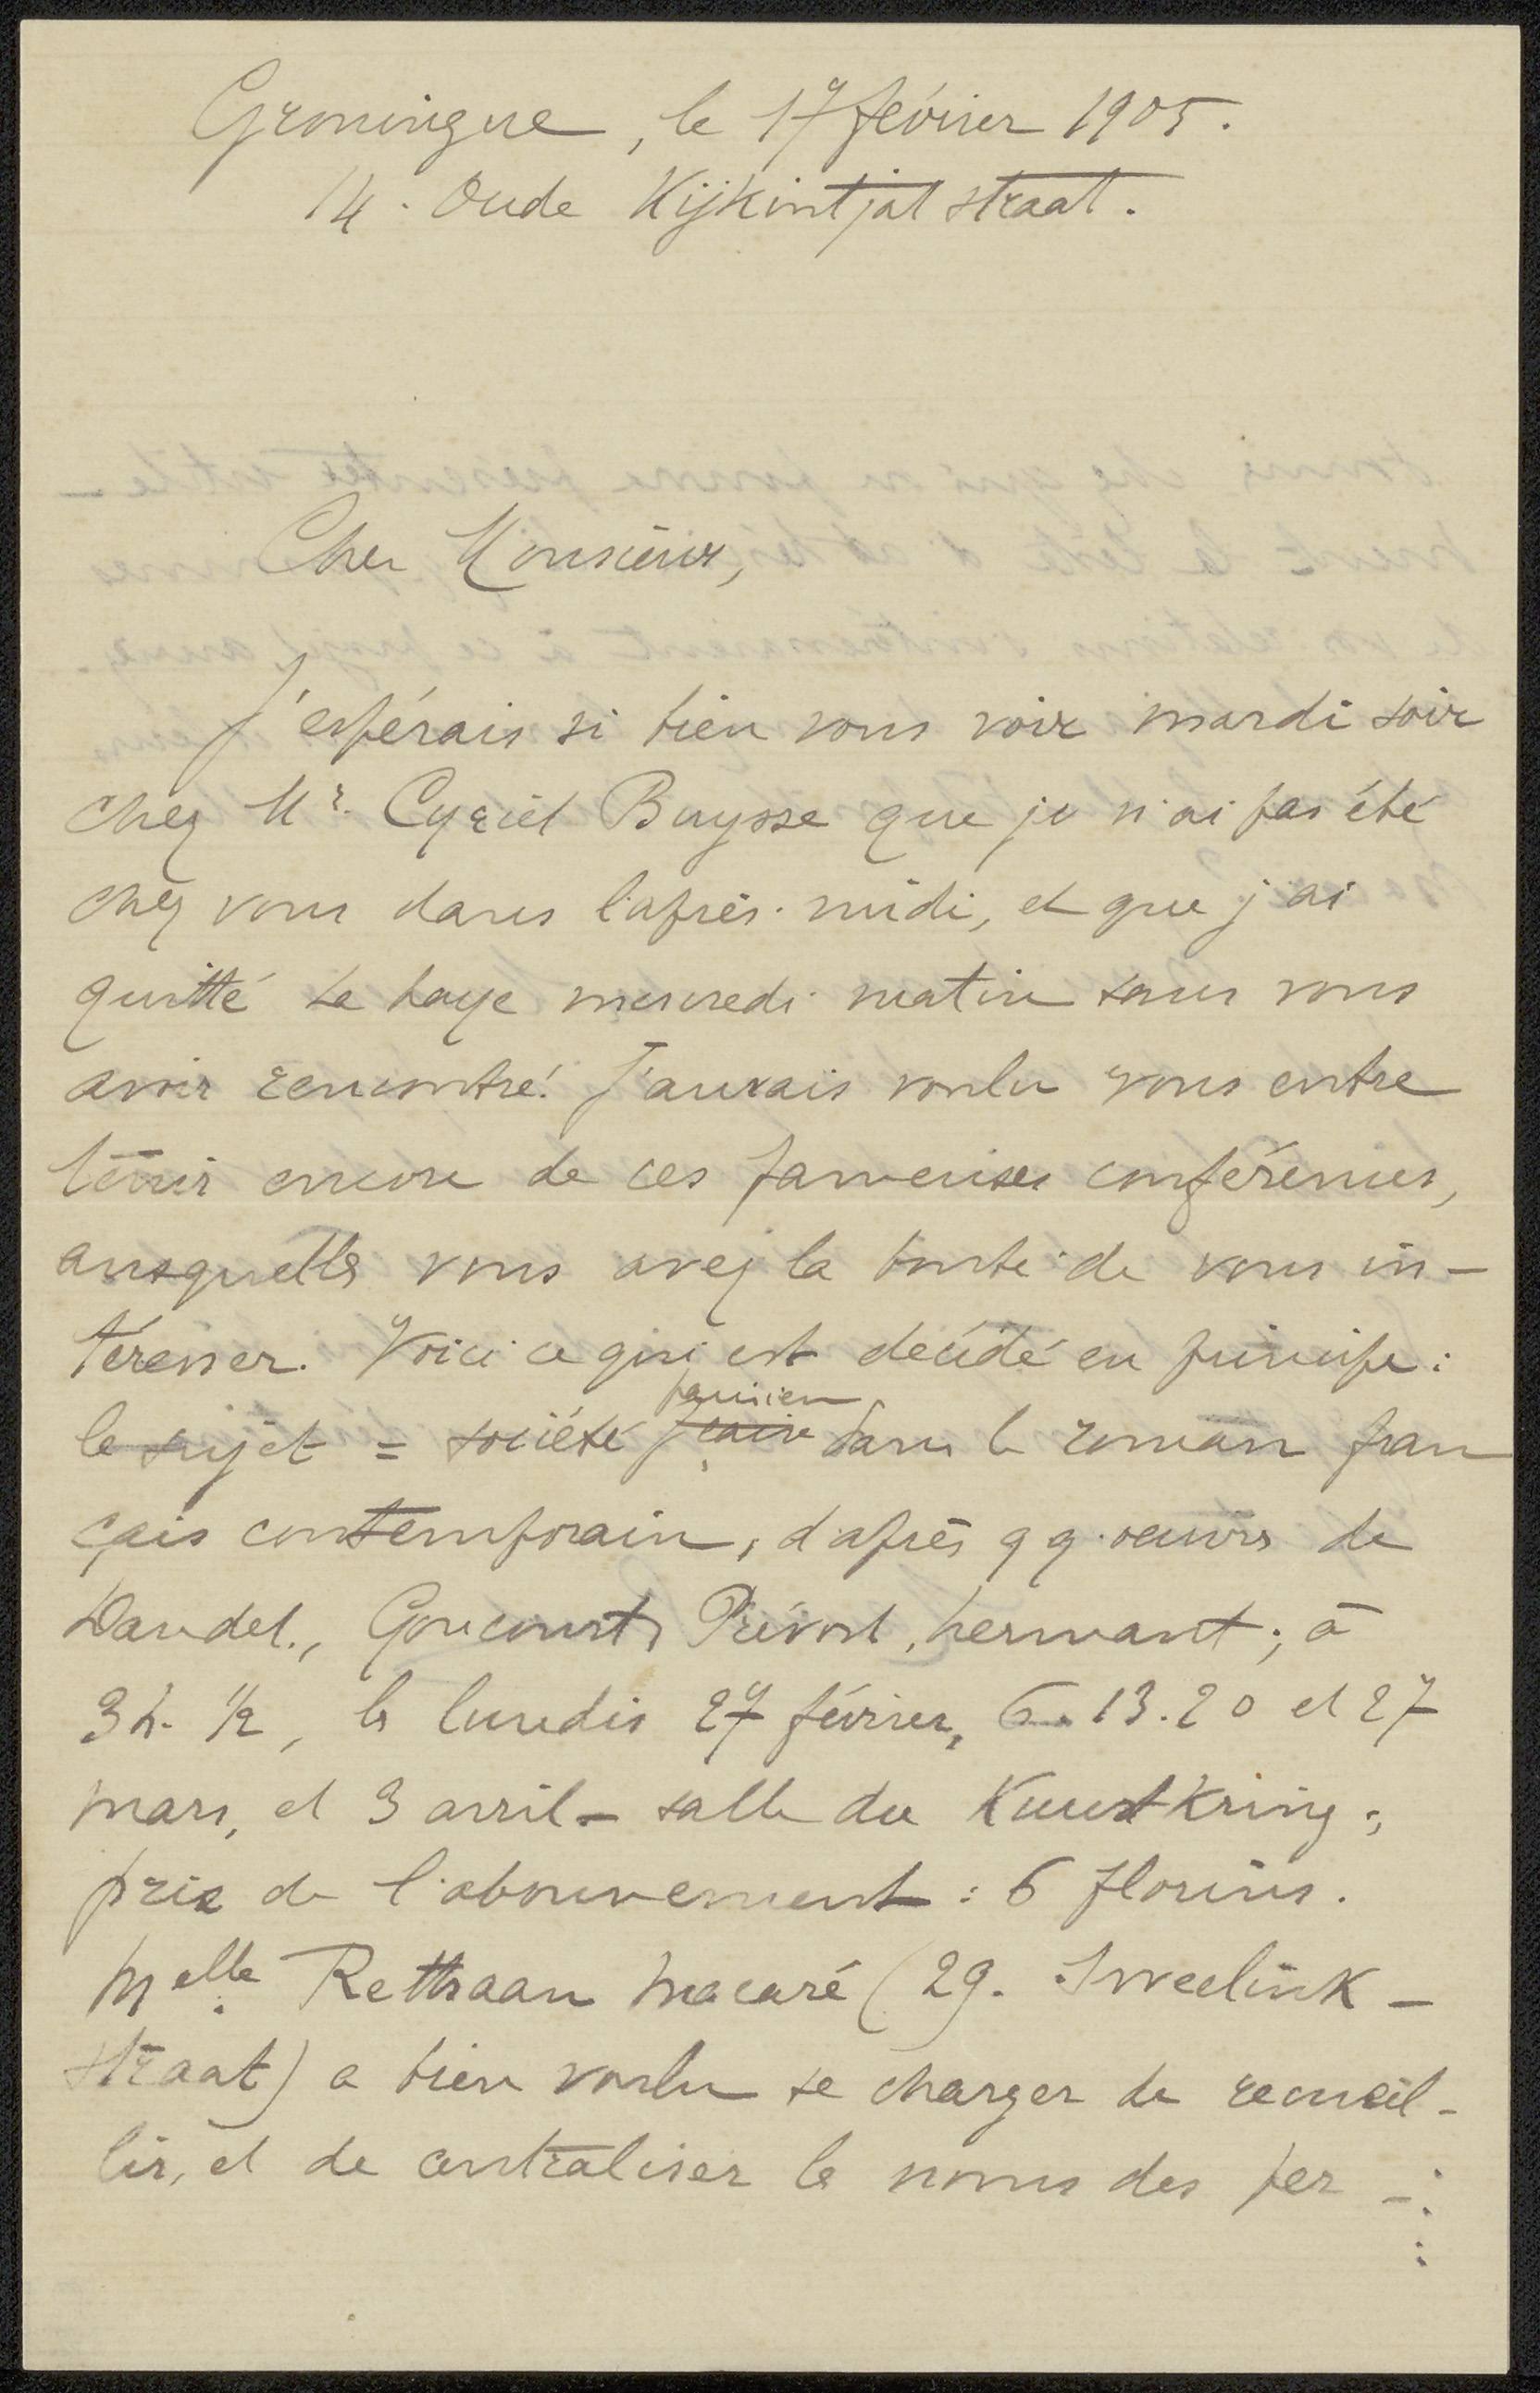 Groningue, le 17 février 1905.
14. Oude Kijkintjat straat.
Cher Monsieur,
J'espérais si bien vous voir mardi soir
chez Mr. Cyriel Buysse que je n'ai pas été
chez vous dans l'après-midi, et que j'ai
quitté La Haye mercredi matin sans vous
avoir rencontré. J'aurais voulu vous entre
tenir encore de ces fameuses conférences,
auxquelles vous avez la bonté de vous in-
téresser. Voici ce qui est décidé en principe:
le sujet = société parisien dans le roman fran
çais contemporain, d'après qq. oeuvres de
Daudet., Goncourt, Prévost, Hermant; à
3h. ½, les lundis 27 février, 6. 13. 20 et 27
mars, et 3 avril - salle du Kunstkring;
prix de l'abonnement: 6 florins.
Melle Rethaan Macaré (29. Sweelink-
straat) a bien voulu se charger de recueil-
lir, et de centraliser les noms des per-